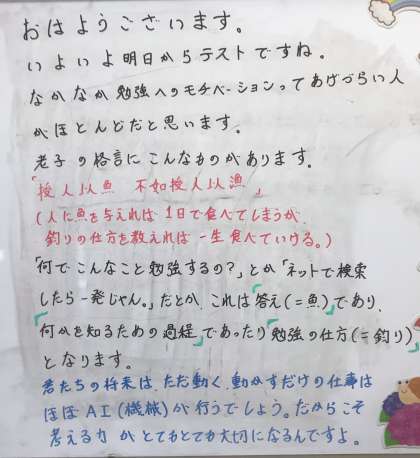 おはようございます。
いよいよ明日からテストですね。
なかなか勉強へのモチベーションってあげづらい人
がほとんどだと思います。
老子の格言にこんなものがあります。
「授人以魚 不如授人以漁」
(人に魚を与えれば1日で食べてしまうが、
釣りの仕方を教えれば一生食べていける。)
「何でこんなこと勉強するの?」とか「ネットで検索
したら一発じゃん。」だとか、これは「答え(=魚)」であり、
「何かを知るための過程」であったり「勉強の仕方(=釣り)」
となります。
君たちの将来は、ただ動く、動かすだけの仕事は
ほぼAI(機械)が行うでしょう。だからこそ
考える力がとてもとても大切になるんですよ。